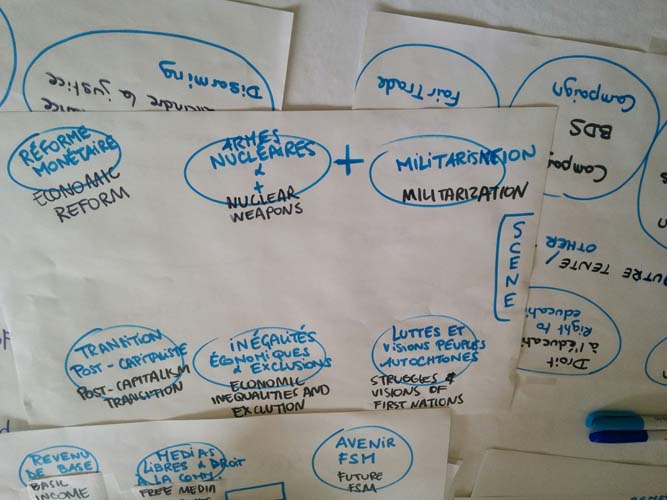 Disarming
la justice
Fair Trade
Campaign
BDS
RÉFORME
MONÉTAIRE
ECONOMIC
REFORM
ARMES
NUCLÉAIRES
&
+
NUCLEAR
WEAPONS
+
MILITARISATION
MILITARIZATION
SCENE
AUTRE TENTE/
OTHER
Droit
à l'éducati
Right to
educati
TRANSITION
POST-CAPITALISTE
POST-CAPITALISM
TRANSITION
INÉGALITÉS
ÉCONOMIQUES
& EXCLUSIONS
ECONOMIC
INEQUALITIES AND
EXCLUTION
LUTTES ET
VISIONS PEUPLES
AUTOCHTONES
STRUGGLES &
VISIONS OF
FIRST NATIONS
REVENU
DE BASE
BASIL
INCOME
MEDIAS
LIBRES & DROIT
À LA COMM.
FREE MEDIA
AVENIR
FSM
FUTURE
FSM